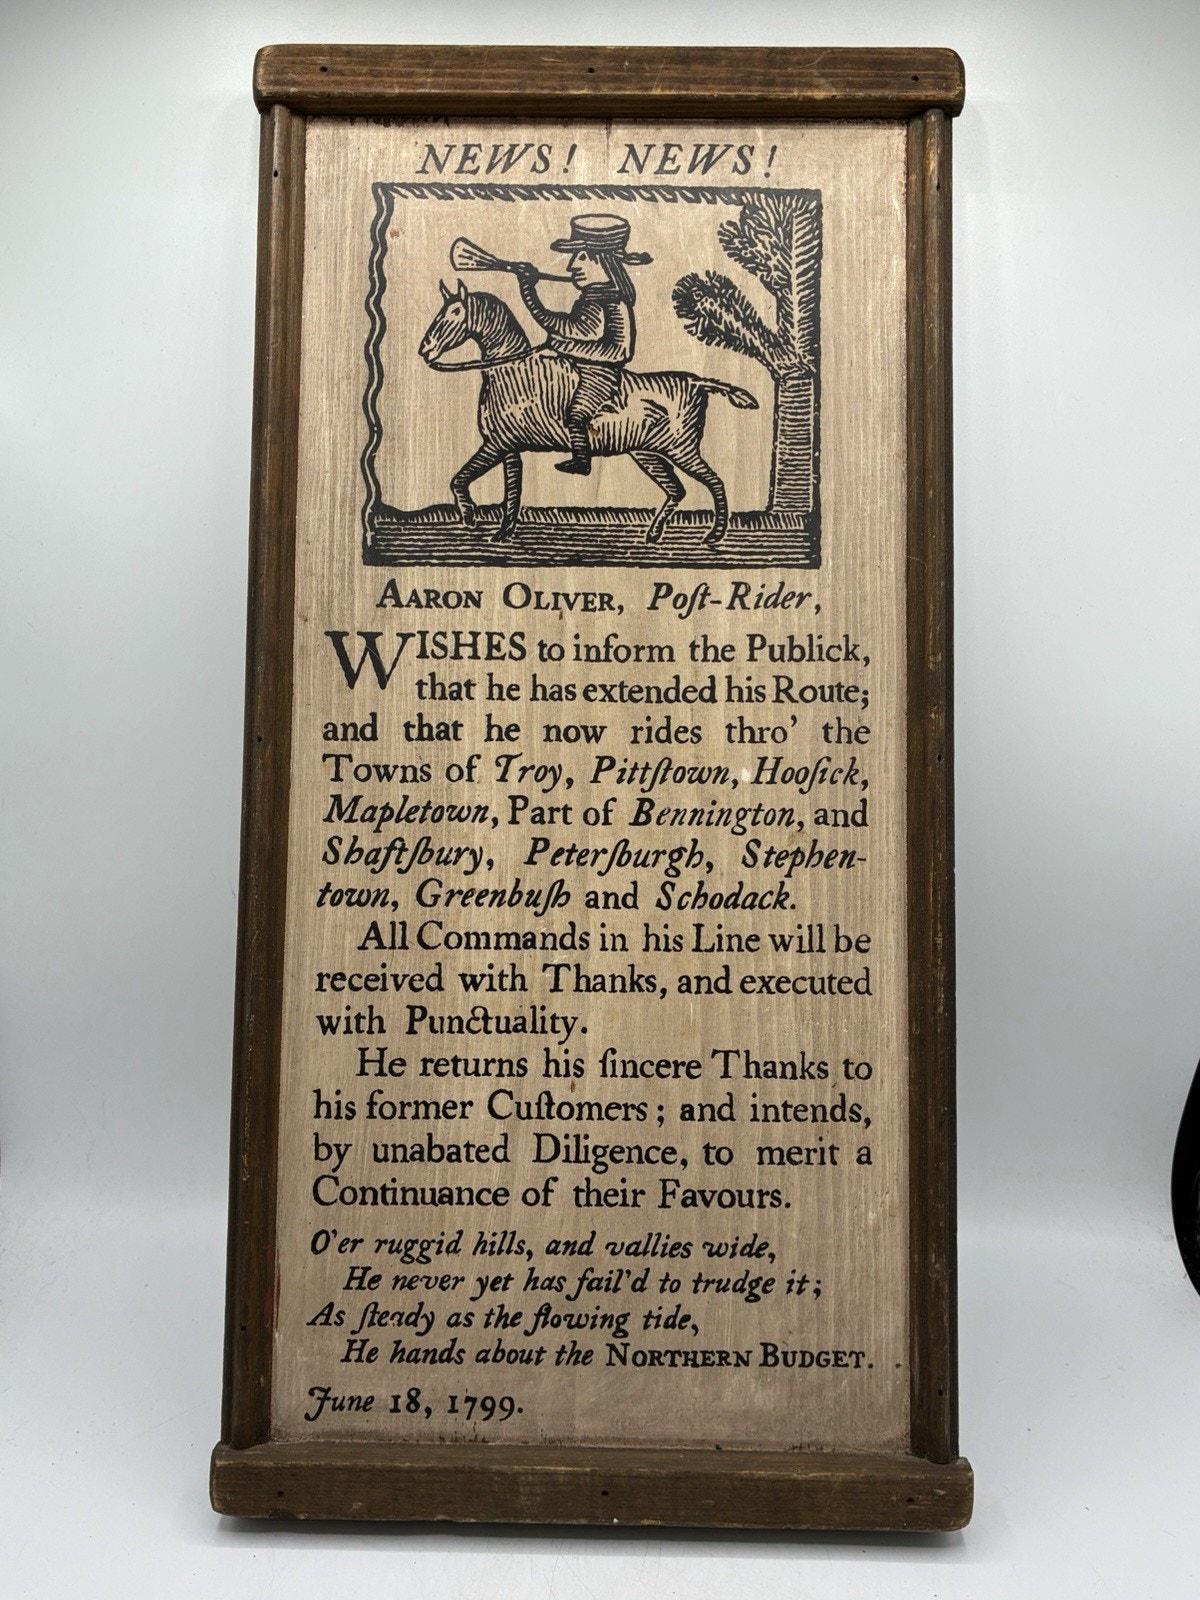 NEWS! NEWS!
AARON OLIVER, Poſt-Rider,
WISHES to inform the Publick,
that he has extended his Route;
and that he now rides thro' the
Towns of Troy, Pittſtown, Hooſick,
Mapletown, Part of Bennington, and
Shaftſbury, Peterſburgh, Stephen-
town, Greenbuſh and Schodack.
All Commands in his Line will be
received with Thanks, and executed
with Punctuality.
He returns his ſincere Thanks to
his former Cuſtomers; and intends,
by unabated Diligence, to merit a
Continuance of their Favours.
O'er ruggid hills, and vallies wide,
He never yet has fail'd to trudge it;
As ſteady as the flowing tide,
He hands about the NORTHERN BUDGET.
June 18, 1799.